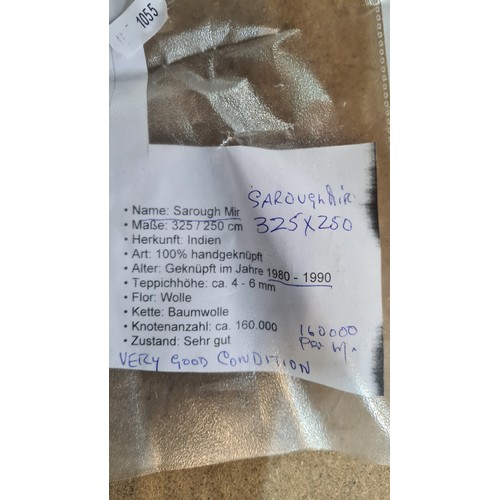 1055
• Name: Sarough Mir SAROUGH MIR
• Maße: 325 / 250 cm 325X250
• Herkunft: Indien
• Art: 100% handgeknüpft
• Alter: Geknüpft im Jahre 1980 - 1990
• Teppichhöhe: ca. 4 - 6 mm
• Flor: Wolle
• Kette: Baumwolle
• Knotenanzahl: ca. 160.000 160000
• Zustand: Sehr gut Per M.
VERY GOOD CONDITION